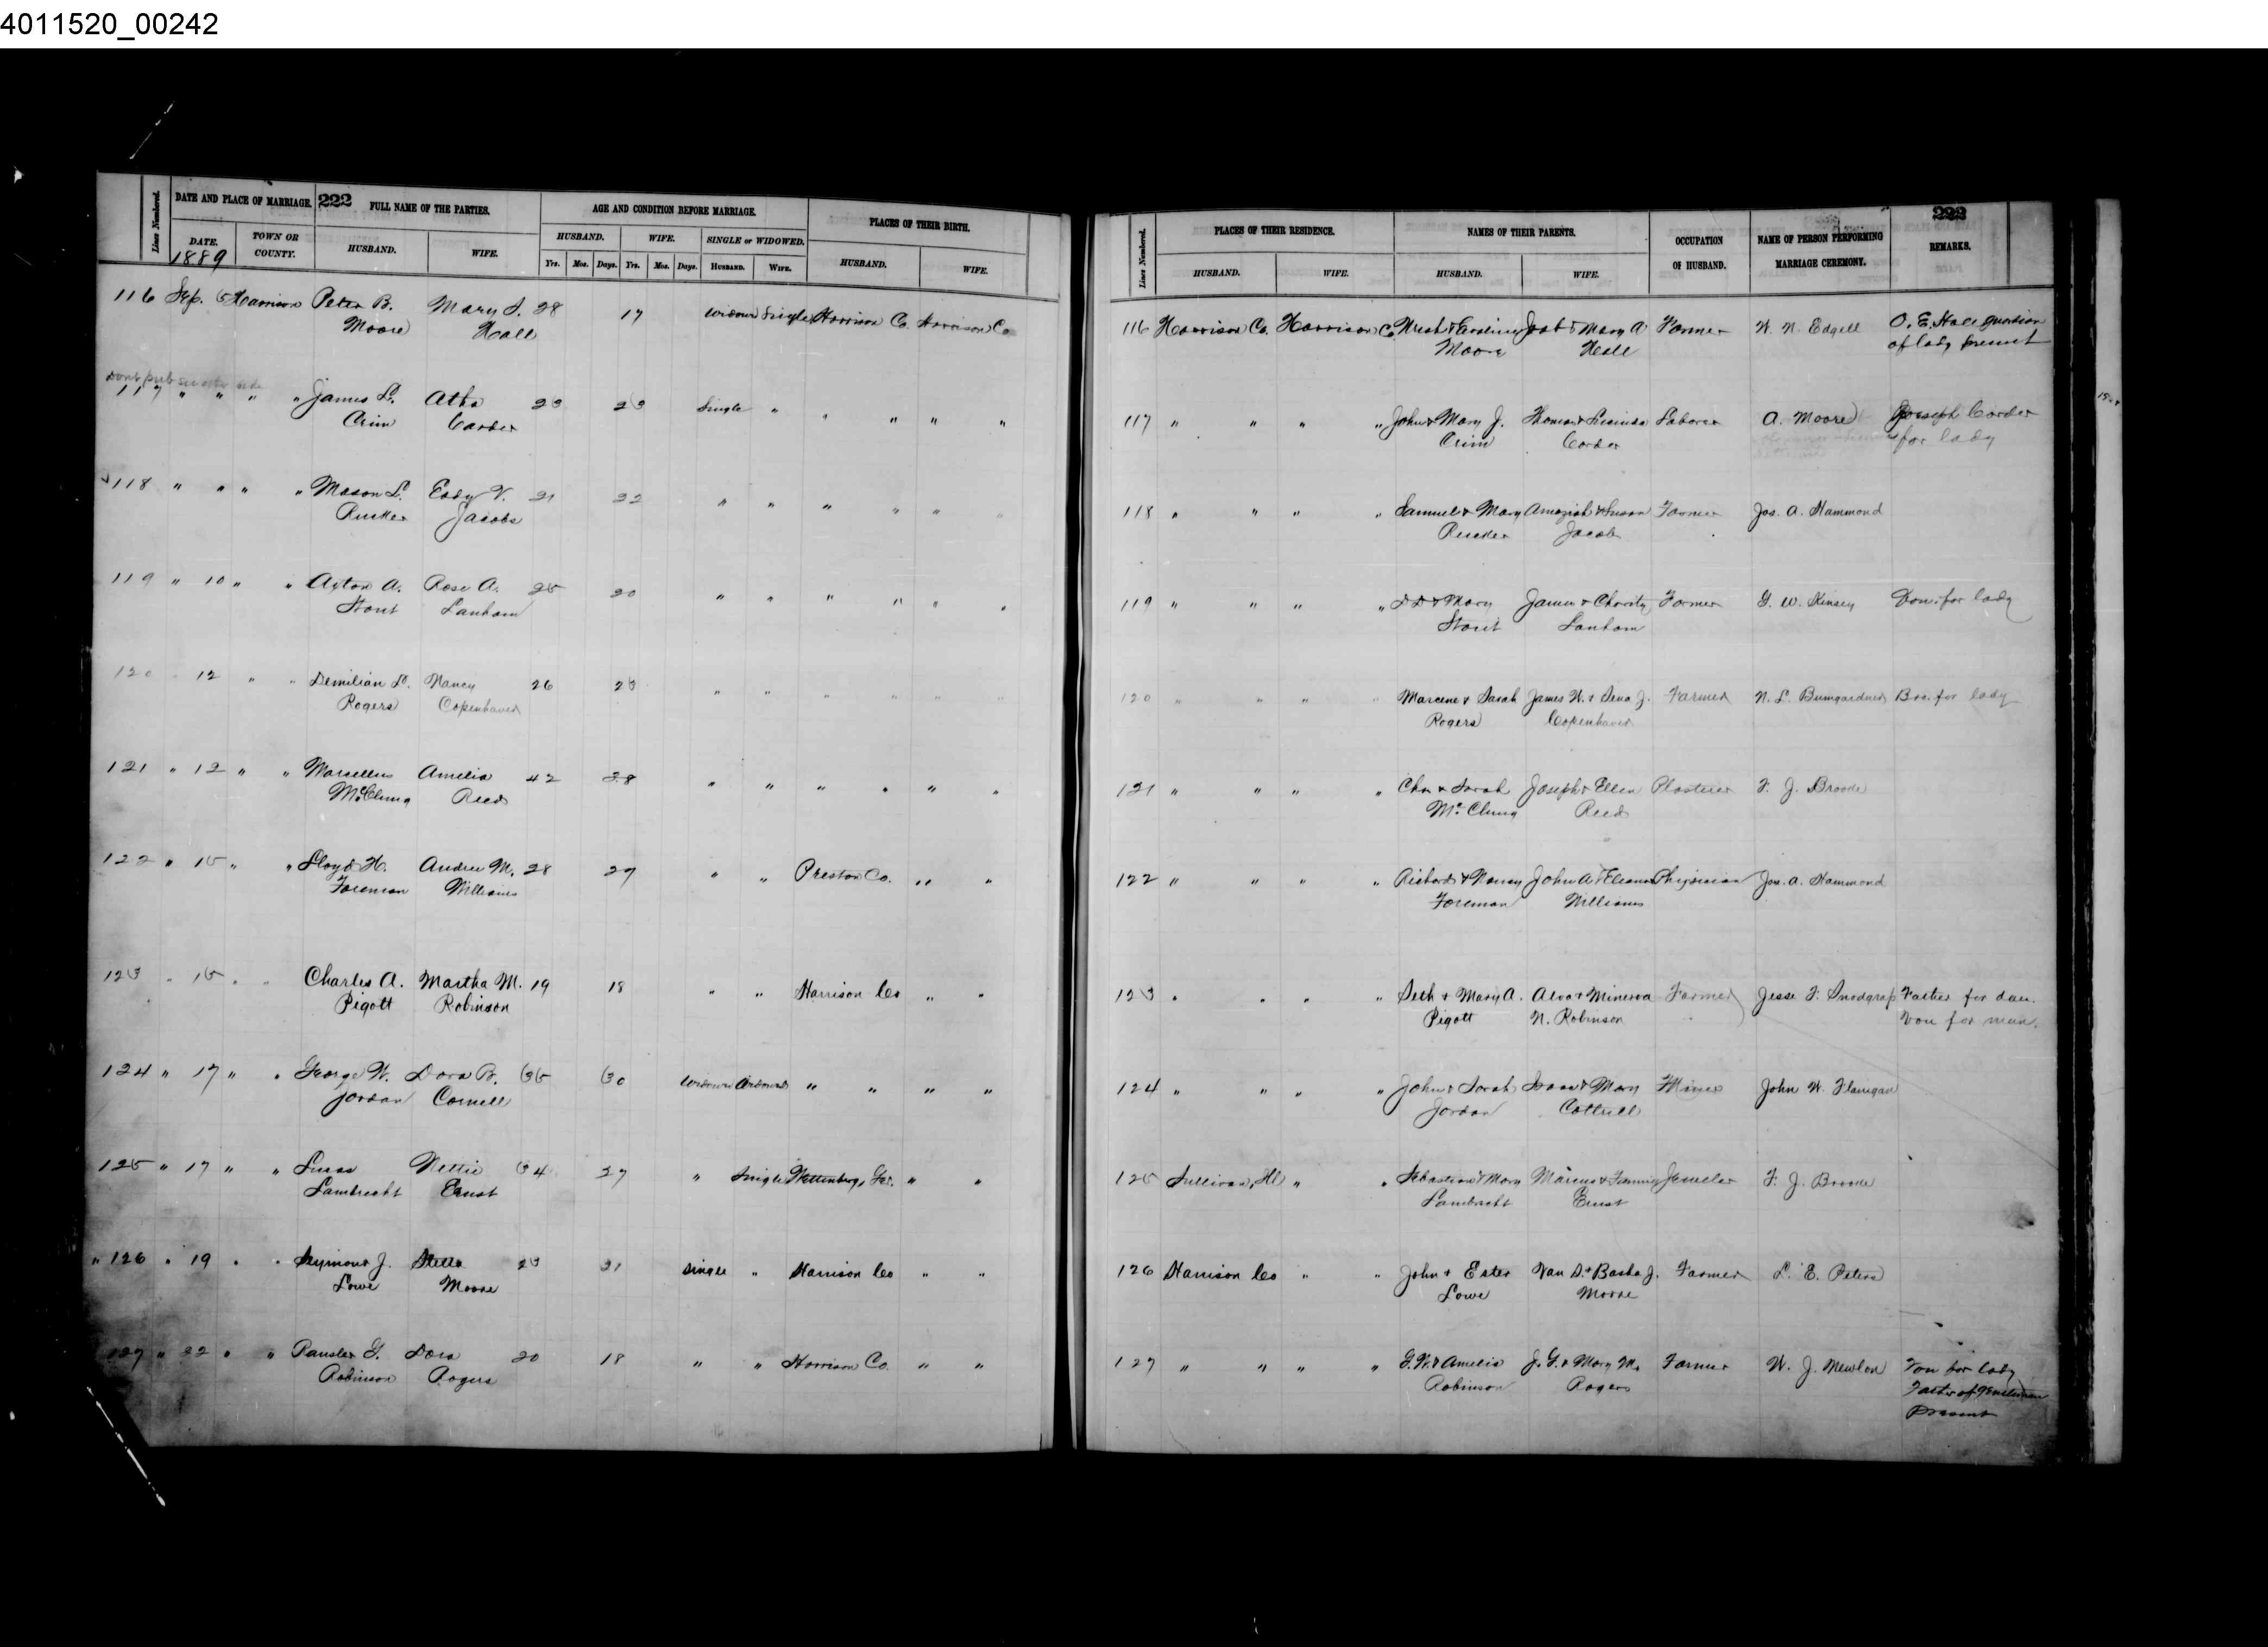 4011520_00242
222
Lines Numbered. DATE AND PLACE OF MARRIAGE. FULL NAME OF THE PARTIES. AGE AND CONDITION BEFORE MARRIAGE. PLACES OF THEIR BIRTH.
DATE. 1889 TOWN OR COUNTY. HUSBAND. WIFE. HUSBAND. WIFE. SINGLE or WIDOWED. HUSBAND. WIFE.
Yrs. Mos. Days. Yrs. Mos. Days. HUSBAND. WIFE.
116 Sep. 5 Harrison Peter B. Mary S. 28 17 Widowed Single Harrison Co. Harrison Co
Moore Hall
117 " " " " James L. 23 23 Single " " " " "
Crim Corder
118 " " " " Mason L. Eady V. 21 22 " " " " " "
Rucker Jacobs
119 " 10 " " Rose A. 25 20 " " " " " "
Stout Lanham
120 " 12 " " Nancy 26 23 " " " " " "
Rogers Copenhaver
121 " 12 " " Marcellus Amelia 42 28 " " " " " "
McClung Reed
122 " 15 " " Lloyd H. M. 28 27 " " Preston Co. " "
Foreman Williams
123 " 15 " " Charles A. Martha M. 19 18 " " Harrison Co " "
Pigott Robinson
124 " 17 " " George W. Dora B. 35 30 Widowed Widowed " " " "
Jordan Cornell
125 " 17 " " Nettie 34 27 " Single Ger. " "
Lambrecht Ernst
" 126 " 19 " " Seymour J. Stella 23 21 Single " Harrison Co " "
Lowe Moore
127 " 22 " " Dora 20 18 " " Harrison Co. " "
Robinson Rogers
222
Lines Numbered. PLACES OF THEIR RESIDENCE. NAMES OF THEIR PARENTS. OCCUPATION OF HUSBAND. NAME OF PERSON PERFORMING MARRIAGE CEREMONY. REMARKS.
HUSBAND. WIFE. HUSBAND. WIFE.
116 Harrison Co. Harrison Co & Mary A Farmer W. N. Edgell O. E. guardian
Moore Hall of lady present
117 " " " " John & Mary J. Thomas & Lucinda Laborer A. Moore Joseph Corder
Crim Corder for lady
118 " " " " Samuel & Mary Amaziah & Susan Farmer Jos. A. Hammond
Rucker Jacobs
119 " " " " D D & Mary James & Charity Farmer G. W. Kinsey for lady
Stout Lanham
120 " " " " Marcene & Sarah James W. & Sena J. Farmer N. L. Bumgardner Bro. for lady
Rogers Copenhaver
121 " " " " & Sarah Joseph & Ellen Plasterer F. J. Broode
McClung Reed
122 " " " " Richard & Nancy John A & Eleanor Physician Jos. A. Hammond
Foreman Williams
123 " " " " Seth & Mary A. Alva & Minerva Farmer Jesse F. Snodgrass Father for dau.
Pigott N. Robinson for man.
124 " " " " John & Sarah Isaac & Mary Miner John W. Flanigan
Jordan Cottrill
125 Sullivan, Ill " " Sebastian & Mary Marcus & Fanny Jeweler F. J. Broode
Lambrecht Ernst
126 Harrison Co " " John & Ester Van D. & Basha J. Farmer L. E. Peters
Lowe Moore
127 " " " " G. W. & Amelia J. G. & Mary M. Farmer W. J. Newlon for lady
Robinson Rogers Father of Gentleman
present